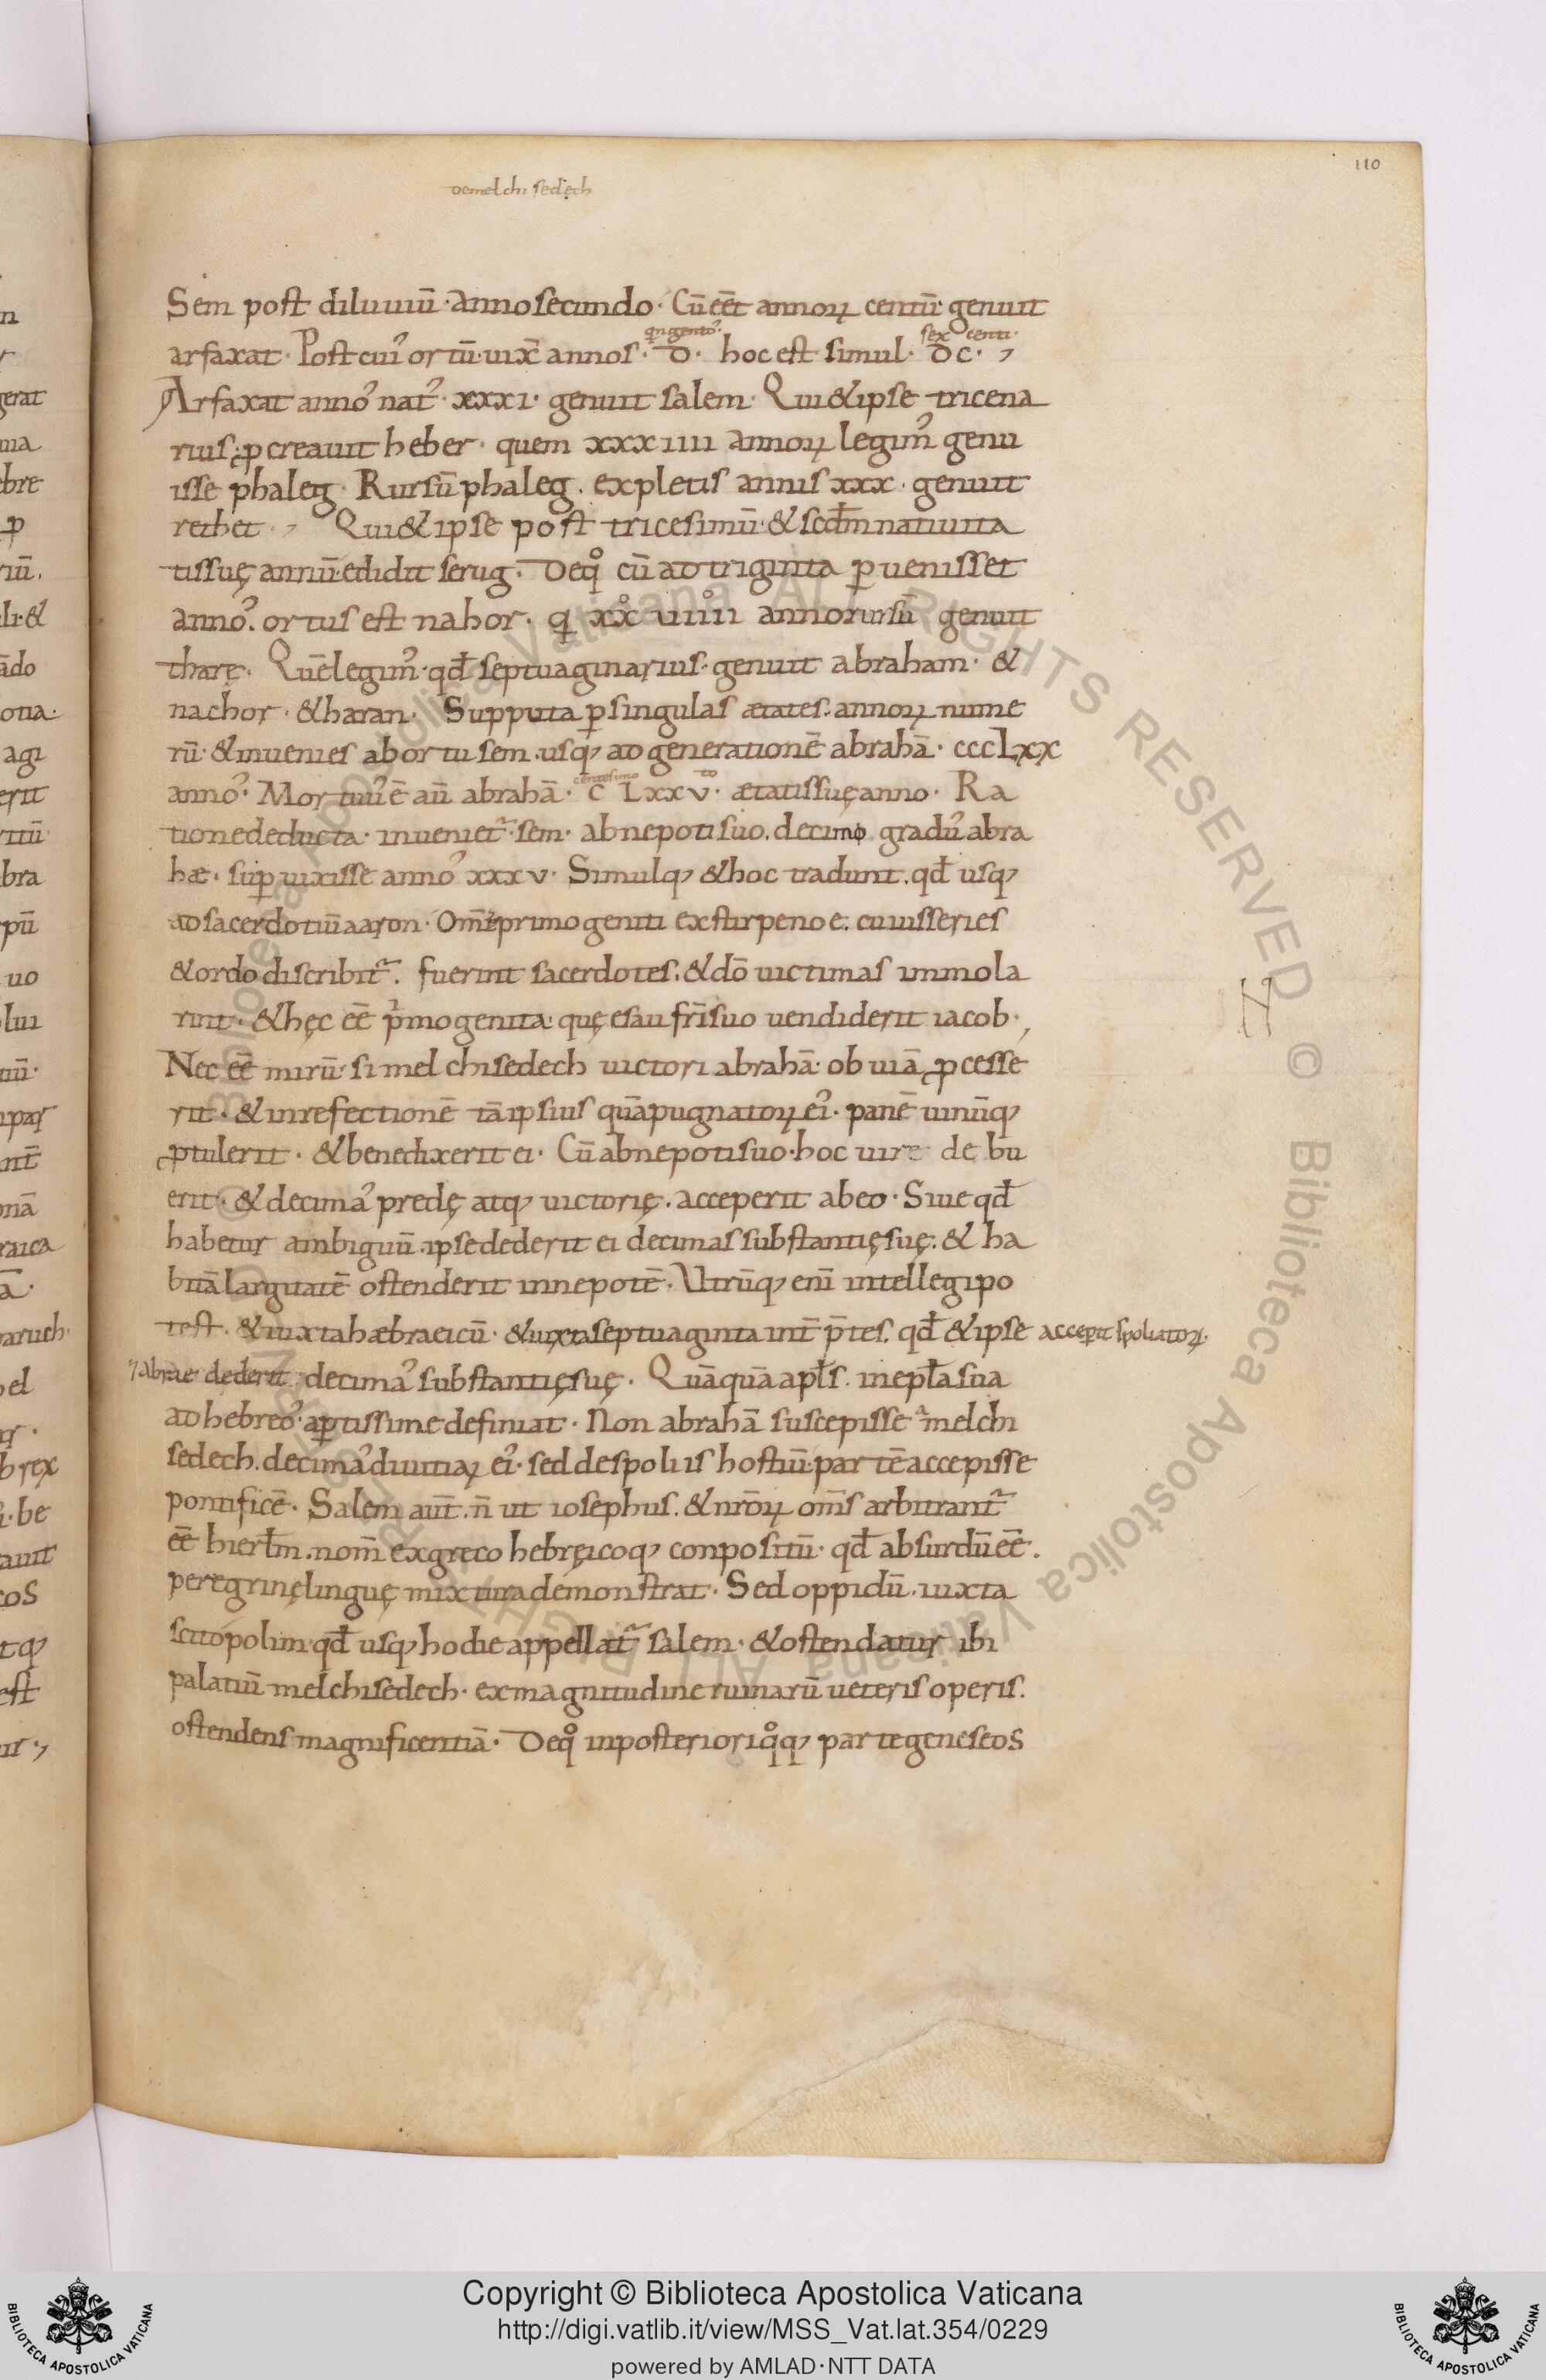 110
de melchisedęch
Sem post diluuiū · anno secundo · Cū eēt annoꝝ centū · genuit
arfaxat · Post cuiꝰ ortū · uix̄ annos · D̄ · hoc est simul · D̄C · ,
qͥngentoꝰ · sexcenti ·
Arfaxat annoꝰ natꝰ · xxxi · genuit salem · Qui & ipse tricena
rius · ꝓcreauit heber · quem xxxiiii annoꝝ legimꝰ genu
isse phaleg · Rursū phaleg . expletis annis xxx · genuit
rethet · , Qui & ipse post tricesimū · & scđm natiuita
tis suę annū · edidit serug · De qͦ cū ad triginta ꝑuenisset
annoꝰ . ortus est nahor · qͥ xxͦ uiiiiͦ anno rursū genuit
tharę · Quē legimꝰ · qđ septuaginarius · genuit abraham · &
nachor · & haran · Supputa ꝑ singulas ætates · annoꝝ nume
rū · & inuenies ab ortu sem . usqꝫ ad generationē abrahā · cccLxx
annoꝰ · Mortuuꝰ ē aū abrahā · c̄ Lxxv · ætatis suę anno · Ra
centesimo to
tione deducta · inuenietᷣ · sem · abnepoti suo . decimo graduꝰ abra
hæ · suꝑuixisse annoꝰ xxxv · Simulqꝫ & hoc tradunt . qđ usqꝫ
ad sacerdotiū aaron · Om̄s primogeniti ex stirpe noe . cuius series
& ordo discribitᷣ . fuerint sacerdotes . & dō uictimas immola
rint · & hęc eē pͥmogenita · quę esau fr̄i suo uendiderit iacob · ,
Nec eē mirū · si melchisedech uictori abrahā · obuiā ꝓcesse
rit · & in refectionē tā ipsius quā pugnatoꝝ eiꝰ · panē uinūqꝫ
ꝓtulerit · & benedixerit ei · Cū abnepoti suo · hoc iure debu
erit · & decimaꝰ predę atqꝫ uictorię . acceperit ab eo · Siue qđ
habetur ambiguū . ipse dederit ei decimas substantię suę . & ha
bitā largitatē ostenderit in nepotē · Vtrūqꝫ enī intellegi po
test . & iuxta hæbraeicū · & iuxta septuaginta int̄p̄tes . qđ & ipse acceꝑit spoliatoꝝ ·
⁊ abrae dederit decimaꝰ substantię suę . Quāquā apłs . in epła sua
ad hebreoꝰ · aꝑtissime definiat · Non abrahā suscepisse ͣ melchi
sedech . decimaꝰ diuitiaꝝ eiꝰ · sed de spoliis hostiū · partē accepisse
pontificē · Salem aut̄ . n̄ ut iosephus . & nr̄oꝝ om̄s arbitrantᷣ
eē hierłm . nom̄ ex greco hebręicoqꝫ conpositū · qđ absurdū eē .
peregrinę linguę mixtura demonstrat · Sed oppidū . iuxta
scitopolim · qđ usqꝫ hodie appellatᷣ salem · & ostendatur ibi
palatiū melchisedech · ex magnitudine ruinarū ueteris operis .
ostendens magnificentiā · De qͦ in posteriori qͦqꝫ parte geneseos
Copyright © Biblioteca Apostolica Vaticana
http://digi.vatlib.it/view/MSS_Vat.lat.354/0229
powered by AMLAD·NTT DATA